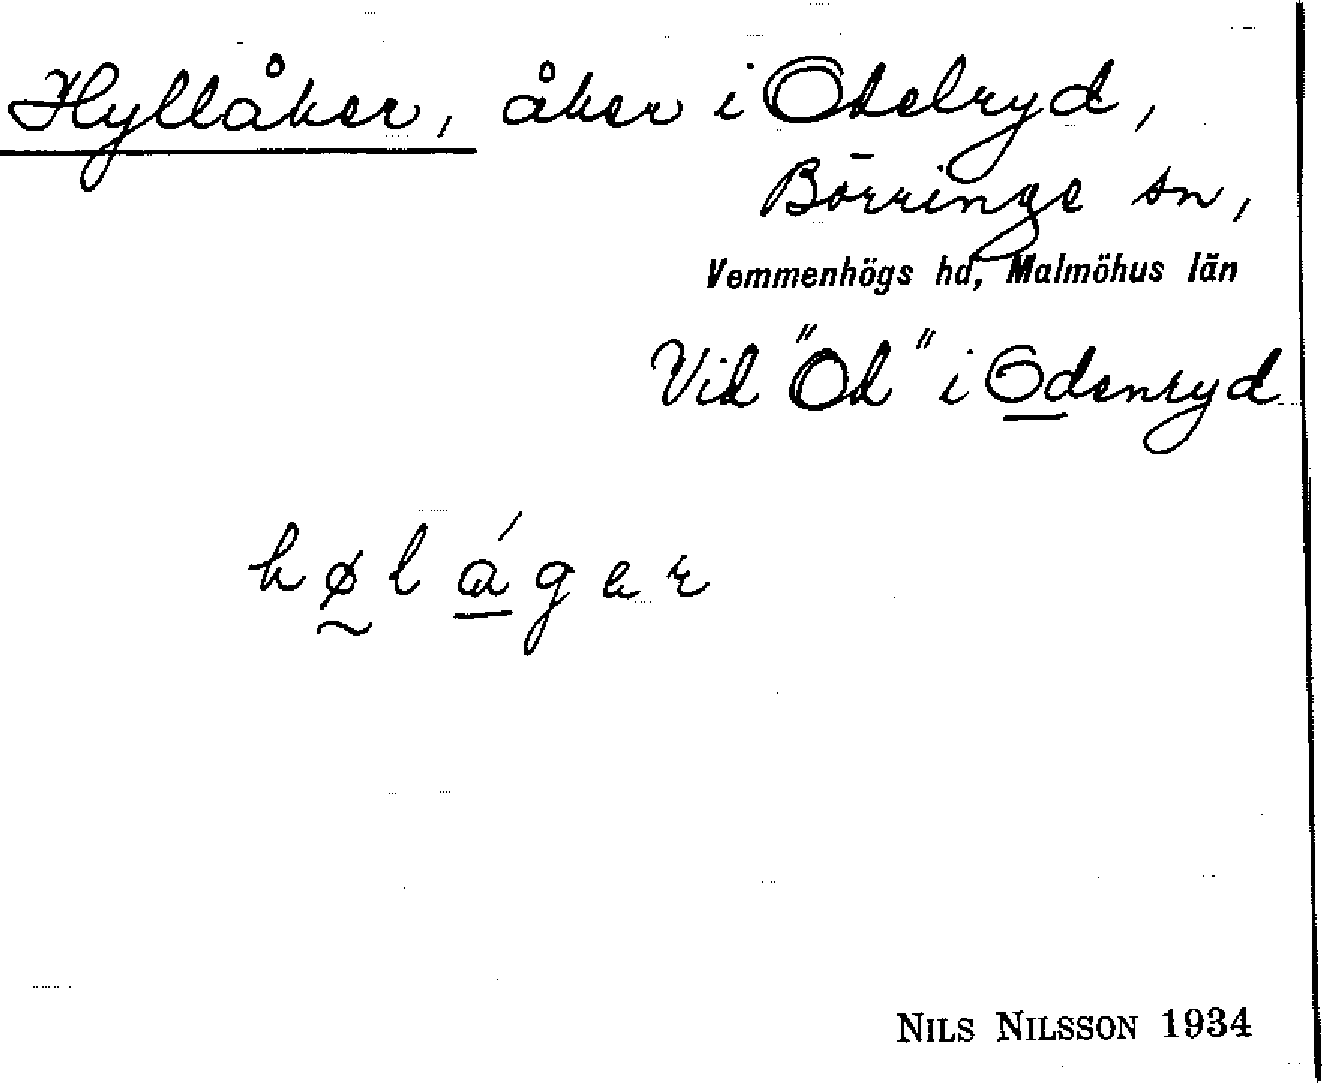 Hyllåker, åker i Odelryd,
Börringe sn,
Vemmenhögs hd, Malmöhus län
Vid "Od" i Odenryd
høláger
NILS NILSSON 1934